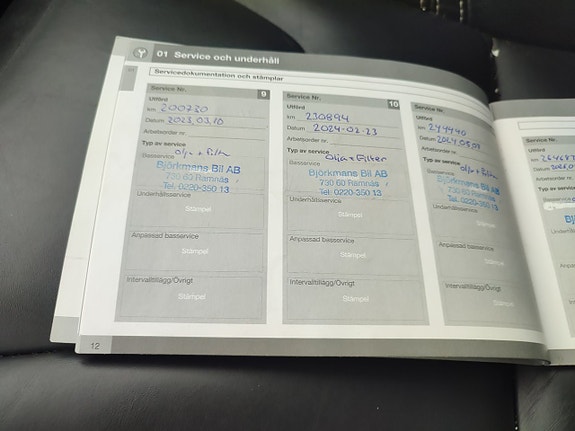 01 Service och underhåll
Servicedokumentation och stämplar
Service Nr. 9
Utförd
km 200230
Datum 2023,03,10
Arbetsorder nr.
Typ av service
Olja + Filter
Basservice
Björkmans Bil AB
730 60 Ramnäs
Tel. 0220-350 13
Underhållsservice
Stämpel
Anpassad basservice
Stämpel
Intervalltillägg/Övrigt
Stämpel
Service Nr. 10
Utförd
km 230894
Datum 2024-02-23
Arbetsorder nr.
Typ av service
Olja + Filter
Basservice
Björkmans Bil AB
730 60 Ramnäs
Tel. 0220-350 13
Underhållsservice
Stämpel
Anpassad basservice
Stämpel
Intervalltillägg/Övrigt
Stämpel
Service Nr.
Utförd
km 244440
Datum
Arbetsorder nr.
Typ av service
Olja + Filter
Basservice
Björkmans Bil AB
730 60 Ramnäs
Tel. 0220-350 13
Underhållsservice
Stämpel
Anpassad basservice
Stämpel
Intervalltillägg/Övrigt
Stämpel
Service Nr.
Utförd
km
Datum
Typ av
Basservice
12